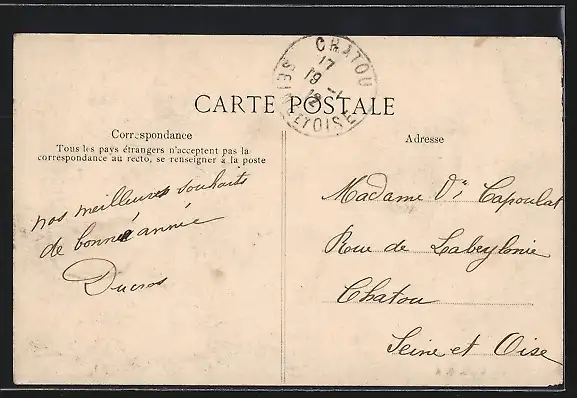 CHATOU
17
19 -1
12
SEINE ET OISE
CARTE POSTALE
Correspondance
Tous les pays étrangers n'acceptent pas la
correspondance au recto, se renseigner à la poste
Adresse
nos meilleures souhaits
de bonne année
Ducros
Madame Vve Capoulat
Rue de Labeylonie
Chatou
Seine et Oise